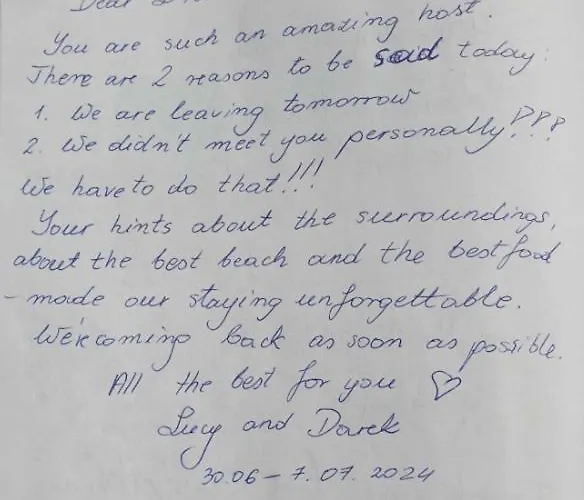 Dear
You are such an amazing host.
There are 2 reasons to be sad today:
1. We are leaving tomorrow
2. We didn't meet you personally???
We have to do that!!!
Your hints about the surroundings,
about the best beach and the best food
- made our staying unforgettable.
We're coming back as soon as possible.
All the best for you ♡
Lucy and Darek
30.06 – 7.07.2024